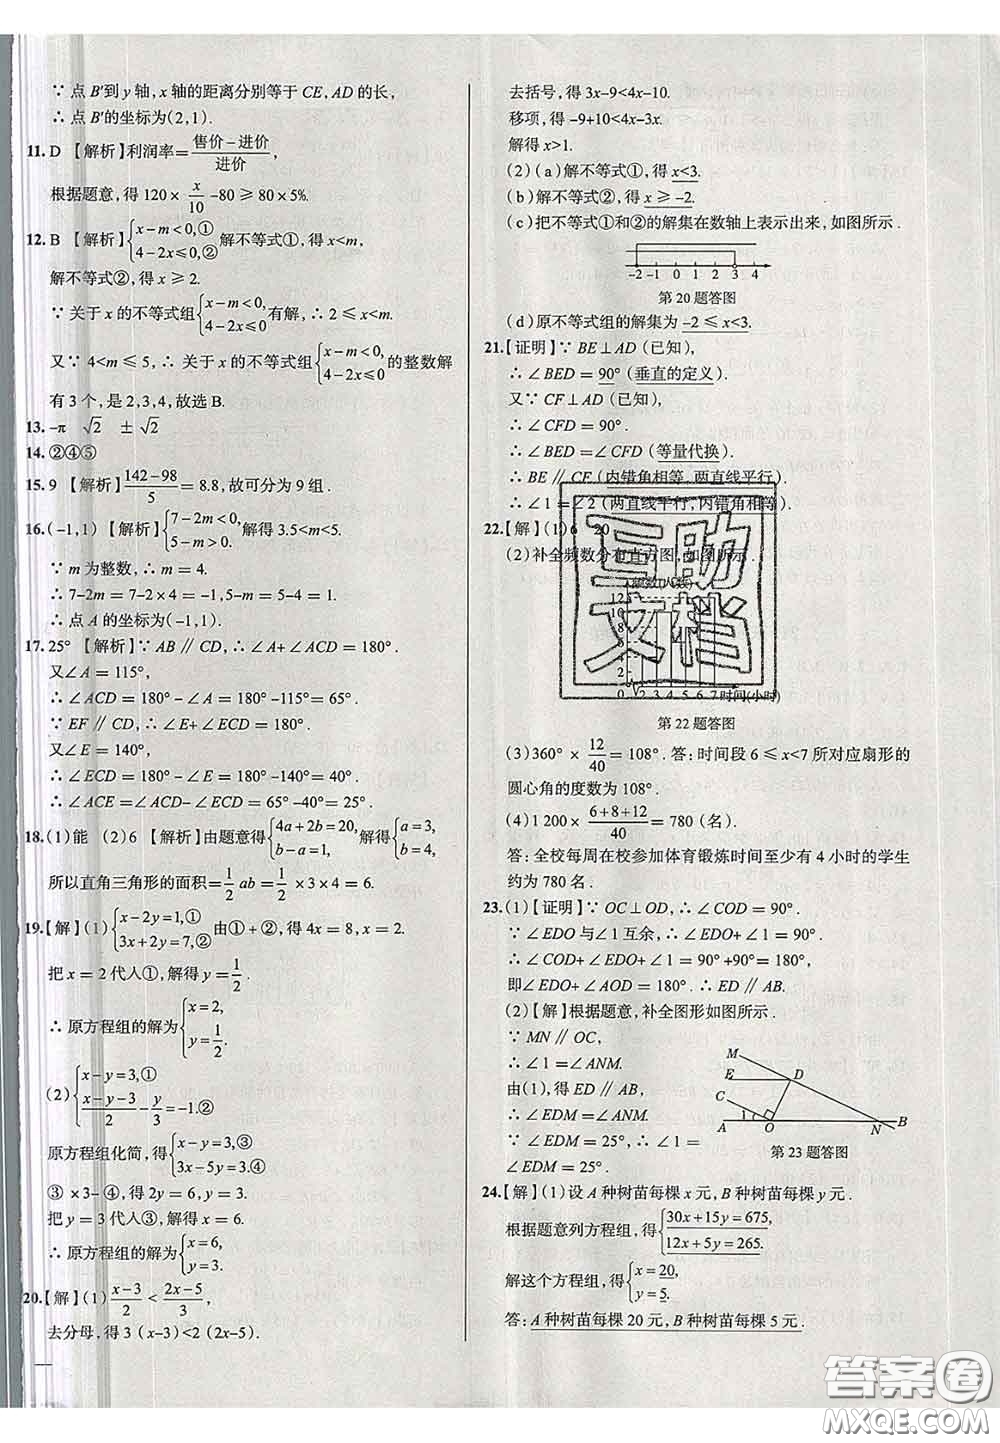 ∵ 点 B′到 y 轴,x 轴的距离分别等于 CE,AD 的长,
∴ 点 B′的坐标为(2,1).
11. D 【解析】利润率=售价-进价/进价,
根据题意,得 120× x/10 -80 ≥ 80×5%.
12. B 【解析】{x-m<0,① 4-2x≤0,② 解不等式①,得 x<m,
解不等式②,得 x ≥ 2.
∵ 关于 x 的不等式组{x-m<0 4-2x≤0 有解,∴ 2<m.
又∵ 4<m ≤ 5,∴ 关于 x 的不等式组{x-m<0, 4-2x≤0 的整数解
有 3 个,是 2,3,4,故选 B.
13. -π √2 ±√2
14. ②④⑤
15. 9 【解析】142-98/5 = 8.8,故可分为 9 组.
16. (-1,1) 【解析】{7-2m<0, 5-m>0. 解得 3.5<m<5.
∵ m 为整数,∴ m = 4.
∴ 7-2m = 7-2×4 = -1,5-m = 5-4 = 1.
∴ 点 A 的坐标为(-1,1).
17. 25° 【解析】∵ AB ∥ CD,∴ ∠A+∠ACD = 180°.
又∠A = 115°,
∴ ∠ACD = 180°-∠A = 180°-115°= 65°.
∵ EF ∥ CD,∴ ∠E+∠ECD = 180°.
又∠E = 140°,
∴ ∠ECD = 180°-∠E = 180°-140°= 40°.
∴ ∠ACE = ∠ACD-∠ECD = 65°-40°= 25°.
18. (1)能 (2)6 【解析】由题意得{4a+2b=20, b-a=1, 解得{a=3, b=4,
所以直角三角形的面积=1/2 ab = 1/2 ×3×4 = 6.
19.【解】(1){x-2y=1,① 3x+2y=7,② 由①+②,得 4x = 8,x = 2.
把 x = 2 代人①,解得 y = 1/2.
∴ 原方程组的解为{x=2, y=1/2.
(2){x-y=3,① x-y-3/2 - y/3 = -1.②
原方程组化简,得{x-y=3,③ 3x-5y=3.④
③ ×3-④,得 2y = 6,y = 3.
把 y = 3 代人③,解得 x = 6.
∴ 原方程组的解为{x=6, y=3.
20.【解】(1) x-3/2 < 2x-5/3,
去分母,得 3 (x-3)<2 (2x-5).
去括号,得 3x-9<4x-10.
移项,得 -9+10<4x-3x.
解得 x>1.
(2)(a)解不等式①,得 x<3.
(b)解不等式②,得 x ≥ -2.
(c)把不等式①和②的解集在数轴上表示出来,如图所示.
-2 -1 0 1 2 3 4
第20题答图
(d)原不等式组的解集为 -2 ≤ x<3.
21.【证明】∵ BE⊥AD (已知),
∴ ∠BED = 90° (垂直的定义).
又∵ CF⊥AD (已知),
∴ ∠CFD = 90°.
∴ ∠BED = ∠CFD (等量代换).
∴ BE ∥ CF (内错角相等,两直线平行).
∴ ∠1 = ∠2 (两直线平行,内错角相等).
22.【解】(1)6 20
(2)补全频数分布直方图,如图所示.
频数(人数)
12
10
8
6
4
2
0 2 3 4 5 6 7 时间(小时)
互助
文档
第22题答图
(3)360° × 12/40 = 108°. 答:时间段 6 ≤ x<7 所对应扇形的
圆心角的度数为 108°.
(4)1200× 6+8+12/40 = 780 (名).
答:全校每周在校参加体育锻炼时间至少有 4 小时的学生
约为 780 名.
23.(1)【证明】∵ OC⊥OD,∴ ∠COD = 90°.
∵ ∠EDO 与∠1 互余,∴ ∠EDO+∠1 = 90°.
∴ ∠COD+∠EDO+∠1 = 90°+90°.
即∠EDO+∠AOD = 180°. ∴ ED ∥ AB.
(2)【解】根据题意,补全图形如图所示.
∵ MN ∥ OC,
∴ ∠1 = ∠ANM.
由(1),得 ED ∥ AB,
∴ ∠EDM = ∠ANM.
∵ ∠EDM = 25°,∴ ∠1 =
∠EDM = 25°.
M
E D
C
A 1 O N B
第23题答图
24.【解】(1)设 A 种树苗每棵 x 元,B 种树苗每棵 y 元.
根据题意列方程组,得{30x+15y=675, 12x+5y=265.
解这个方程组,得{x=20, y=5.
答:A 种树苗每棵 20 元,B 种树苗每棵 5 元.
答案圈
MXQE.COM